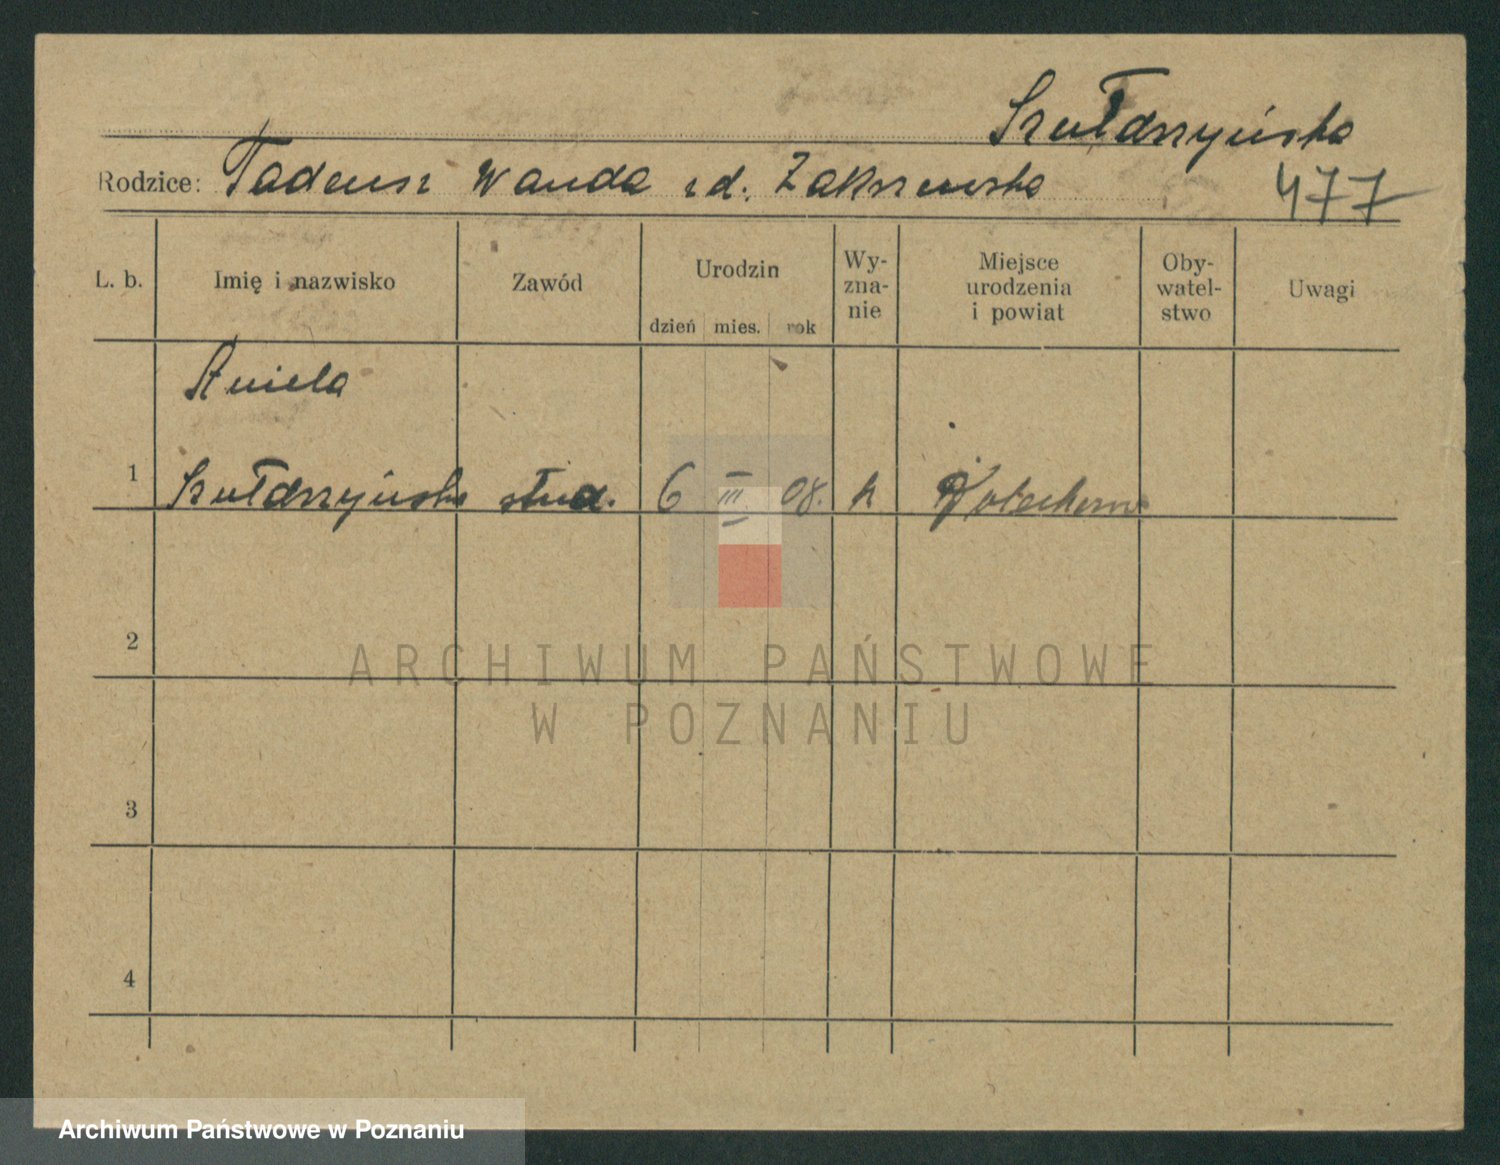 Szułdrzyńska
Rodzice: Tadeusz Wanda zd. Zakrzewska
477
L. b. Imię i nazwisko Zawód Urodzin dzień mies. rok Wy- zna- nie Miejsce urodzenia i powiat Oby- watel- stwo Uwagi
Aniela
1 Szułdrzyńska stud. 6 III 08. k
2
ARCHIWUM PAŃSTWOWE
W POZNANIU
3
4
Archiwum Państwowe w Poznaniu